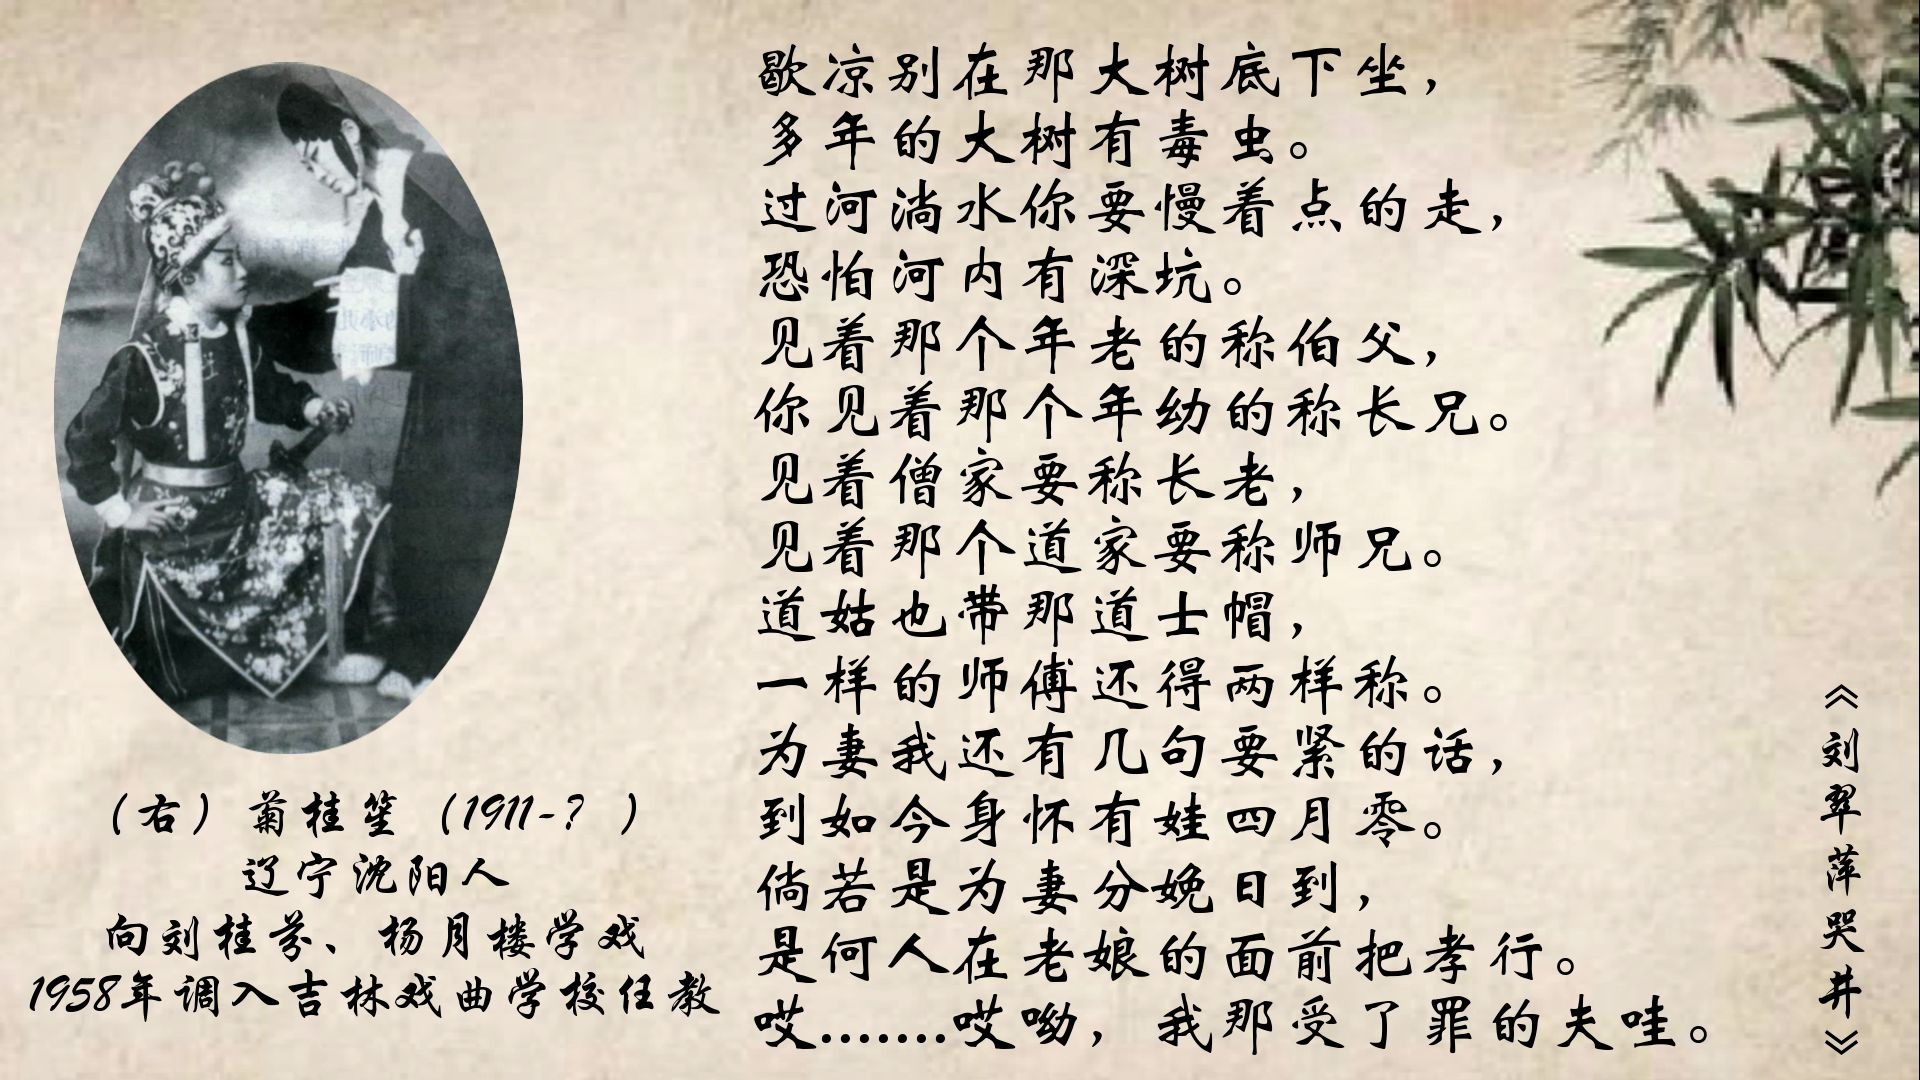 歇凉别在那大树底下坐，
多年的大树有毒虫。
过河淌水你要慢着点的走，
恐怕河内有深坑。
见着那个年老的称伯父，
你见着那个年幼的称长兄。
见着僧家要称长老，
见着那个道家要称师兄。
道姑也带那道士帽，
一样的师傅还得两样称。
为妻我还有几句要紧的话，
到如今身怀有娃四月零。
倘若是为妻分娩日到，
是何人在老娘的面前把孝行。
哎.......哎呦，我那受了罪的夫哇。
（右）菊桂笙（1911-？）
辽宁沈阳人
向刘桂芬、杨月楼学戏
1958年调入吉林戏曲学校任教
《刘翠萍哭井》